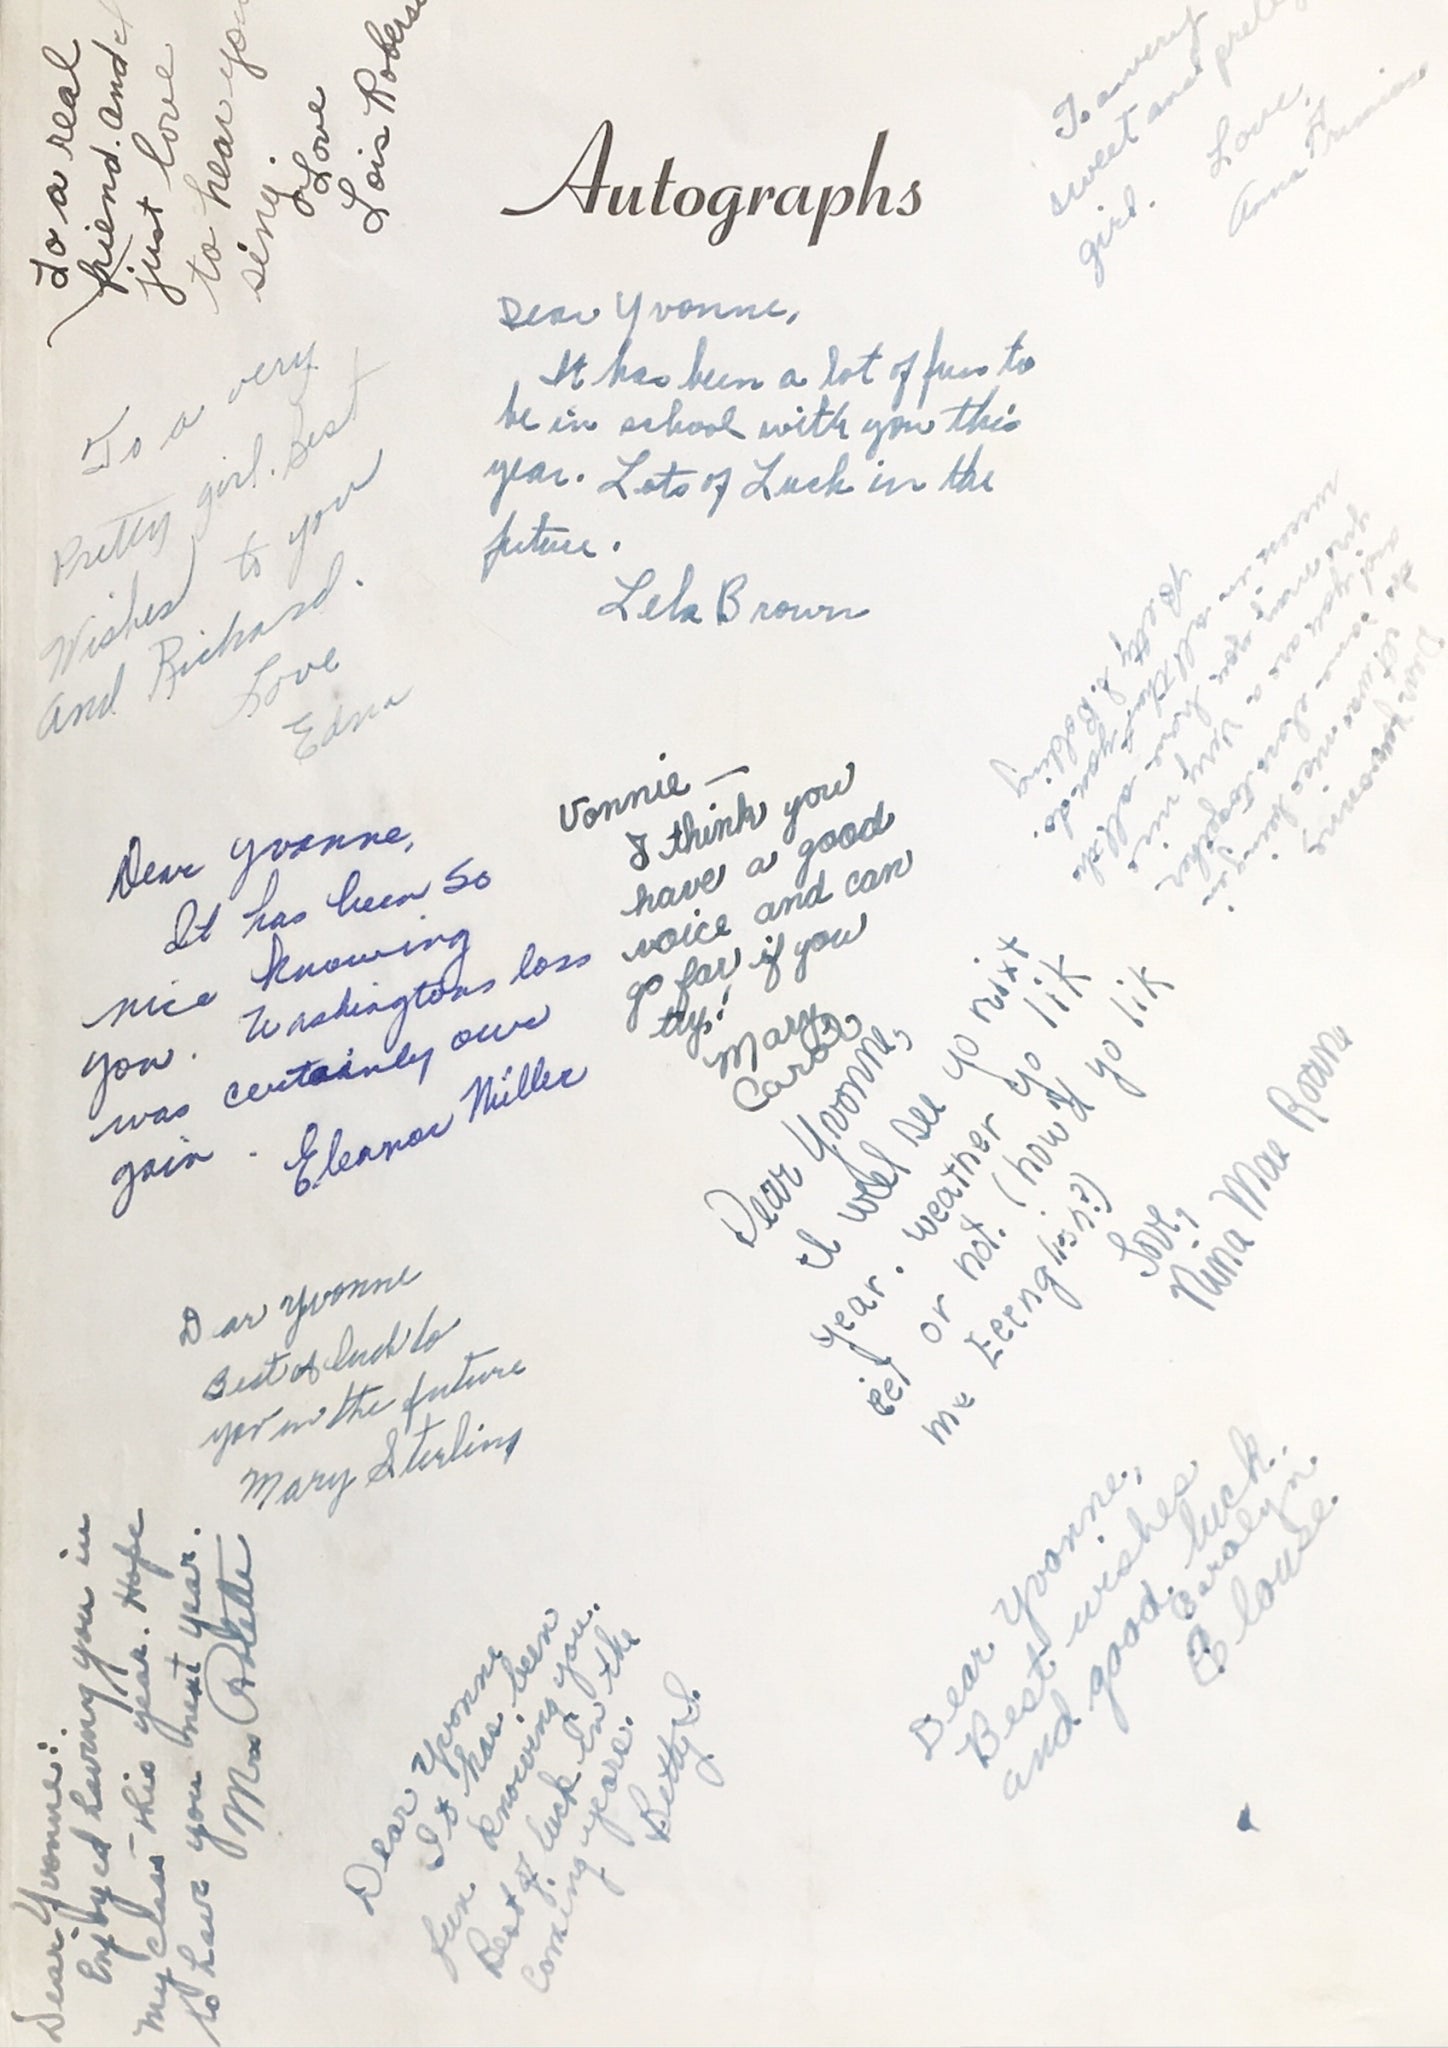 To a real
friend. and
just love
to hear you
sing.
Love
Lois
Autographs
To a very
sweet and pretty
girl.
Love,
Anna
Dear Yvonne,
It has been a lot of fun to
be in school with you this
year. Lots of Luck in the
future.
Lela Brown
To a very
Pretty girl. Best
Wishes to you
And Richard.
Love
Edna
Dear Yvonne,
It was nice having
in some class together
and you are a very nice
may you have all the
in all that you do.
Betty L. Bolding
Dear Yvonne,
It has been so
nice knowing
you. Washingtons loss
was certainly our
gain.
Eleanor Miller
Vonnie —
I think you
have a good
voice and can
go far if you
try!
Mary
Carol
Dear Yvonne,
I wel see yo nixt
year. weather yo lik
eet or not. (how'd yo lik
me Eeenglish?)
Love,
Nina Mae Roane
Dear Yvonne
Best of luck to
you in the future
Mary Sterling
Dear Yvonne:
Enjoyed having you in
my class this year. Hope
to have you next year.
Mrs
Dear Yvonne
It has been
fun knowing you.
Best of luck in the
coming years.
Betty S.
Dear Yvonne,
Best wishes
and good luck.
Carolyn
Clouse.